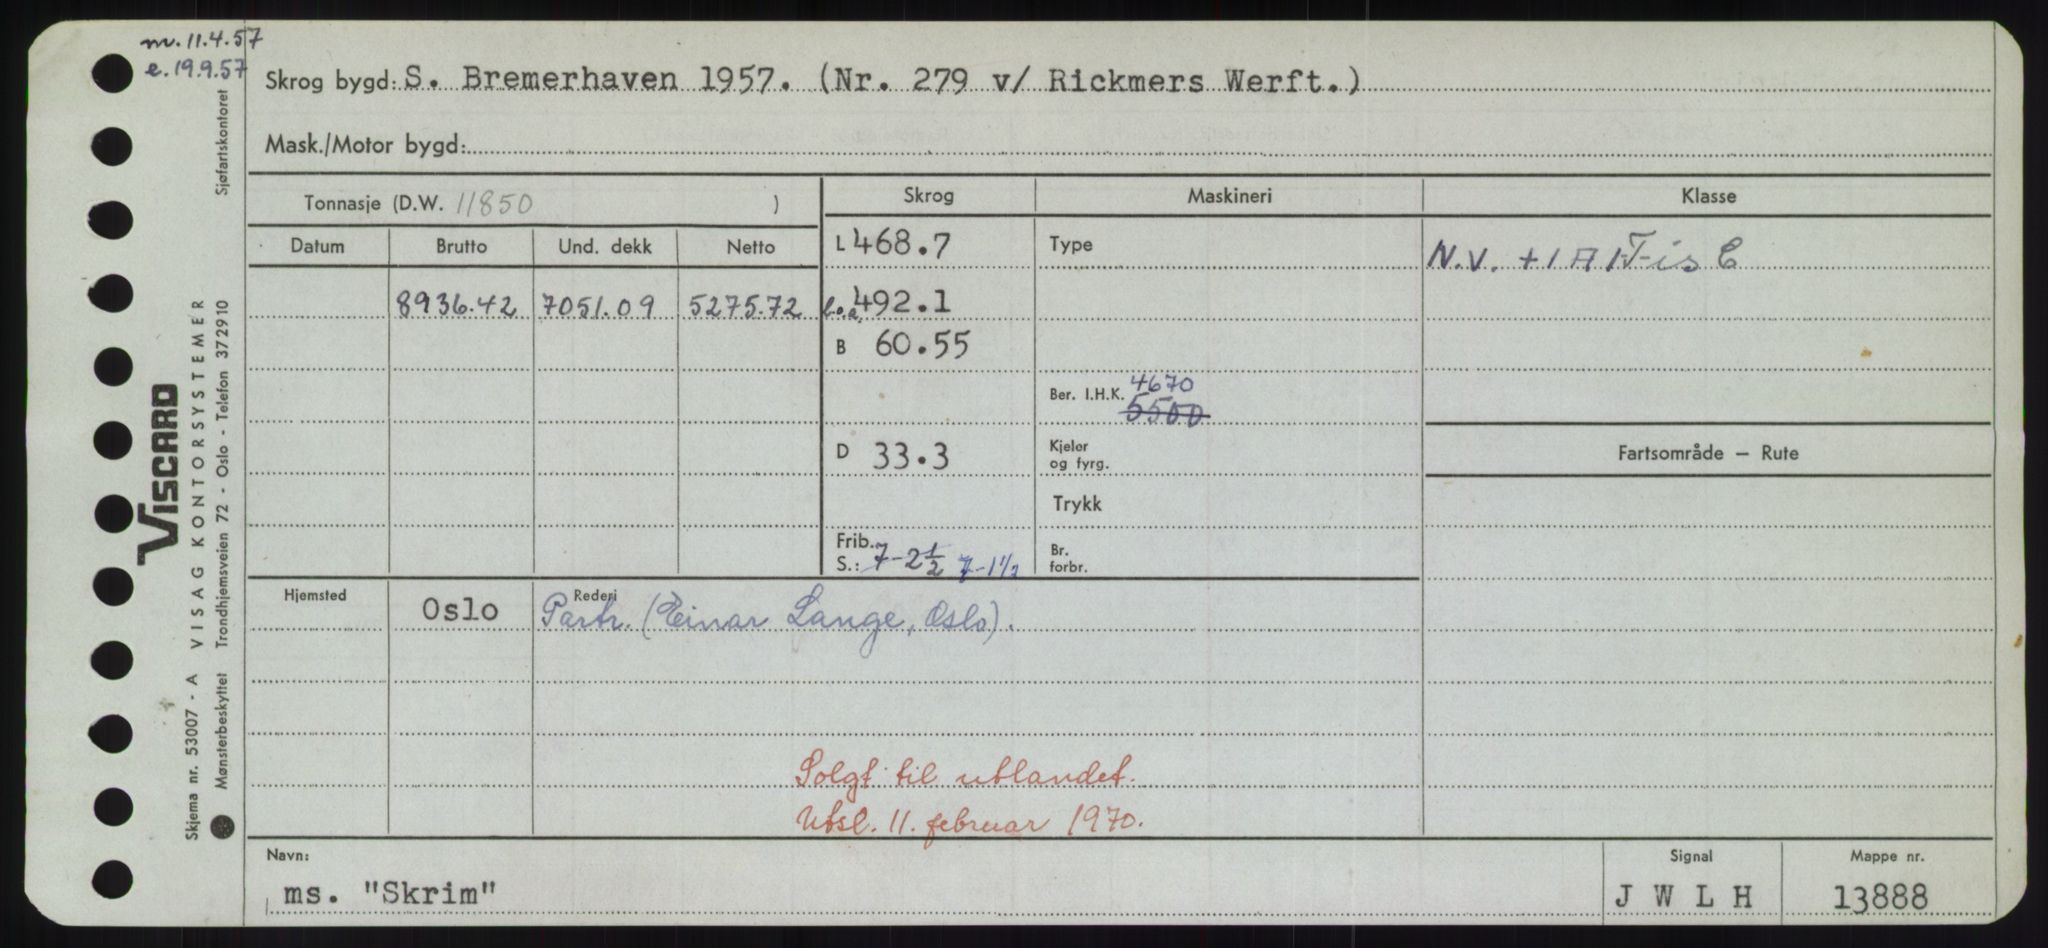 m. 11.4.57
e. 19.9.57
Skrog bygd: S. Bremerhaven 1957. (Nr. 279 v/ Rickmers Werft.)
Mask./Motor bygd:
Tonnasje (D.W. 11850 )
Skrog Maskineri Klasse
Datum Brutto Und. dekk Netto
L 468.7
Type
N.V. + 1 A 1 - is C
8936.42 7051.09 5275.72
l.o.a. 492.1
B 60.55
Ber. I.H.K. 4670
5500
D 33.3
Kjeler
og fyrg.
Fartsområde — Rute
Trykk
Frib.
S.: 7-2½ 7-1½
Br.
forbr.
Hjemsted Oslo
Rederi
Partr. (Einar Lange, Oslo).
Solgt til utlandet.
Utsl. 11. februar 1970.
Navn:
ms. "Skrim"
Signal
J W L H
Mappe nr.
13888
VISCARD
Skjema nr. 53007 - A VISAG KONTORSYSTEMER
Mønsterbeskyttet Trondhjemsveien 72 - Oslo - Telefon 372910 Sjøfartskontoret